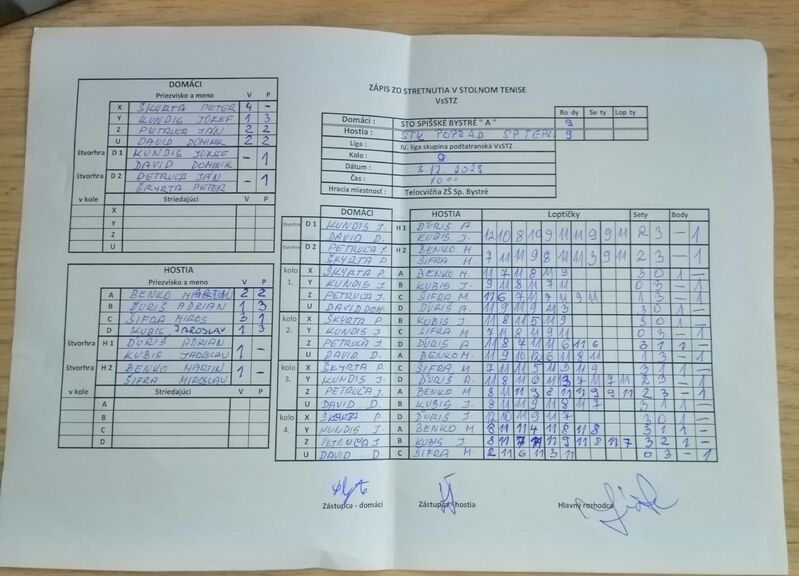 ZÁPIS ZO STRETNUTIA V STOLNOM TENISE
VsSTZ
DOMÁCI
Priezvisko a meno V P
X ŠKYRTA PETER 4 –
Y KUNDIS JOZEF 1 3
Z PETRUĽA JÁN 2 2
U DAVID DOMINIK 2 2
štvorhra D 1 KUNDIS JOZEF – 1
DAVID DOMINIK
štvorhra D 2 PETRUĽA JÁN – 1
ŠKYRTA PETER
v kole Striedajúci V P
X
Y
Z
U
HOSTIA
Priezvisko a meno V P
A BENKO MARTIN 2 2
B ĎURIŠ ADRIAN 1 3
C ŠIFRA MIROS 3 1
D KUBIS JAROSLAV 1 3
štvorhra H 1 ĎURIŠ ADRIAN 1 –
KUBIS JAROSLAV
štvorhra H 2 BENKO MARTIN 1 –
ŠIFRA MIROSLAV
v kole Striedajúci V P
A
B
C
D
Body Sety Lopty
Domáci : STO SPIŠSKÉ BYSTRÉ " A " 9
Hostia : STK POPRAD SP.TEPL. 9
Liga : IV. liga skupina podtatranská VsSTZ
Kolo : 9
Dátum : 3.12.2023
Čas : 10:00
Hracia miestnosť : Telocvičňa ZŠ Sp. Bystré
DOMÁCI HOSTIA Loptičky Sety Body
štvorhra D 1 KUNDIS J. H 1 ĎURIŠ A
DAVID D. KUBIS J. 12 10 8 10 9 11 11 9 9 11 2 3 – 1
štvorhra D 2 PETRUĽA J H 2 BENKO M
ŠKYRTA P. ŠIFRA M. 7 11 11 9 8 11 11 3 9 11 2 3 – 1
kolo 1.
X ŠKYRTA P. A BENKO M. 11 7 11 8 11 9 3 0 1 –
Y KUNDIS J. B KUBIS J. 9 11 8 11 7 11 0 3 – 1
Z PETRUĽA J. C ŠIFRA M. 1 3 – 1
U DAVID DOM. D ĎURIŠ A. 3 0 1 –
kolo 2.
X ŠKYRTA P. B KUBIS J. 11 8 11 5 11 9 3 0 1 –
Y KUNDIS J. C ŠIFRA M. 7 11 8 11 9 11 0 3 – 1
Z PETRUĽA J D ĎURIŠ A 11 8 7 11 11 6 11 6 3 1 1 –
U DAVID D. A BENKO M. 11 9 10 12 6 11 8 11 1 3 – 1
kolo 3.
X ŠKYRTA P. C ŠIFRA M 7 11 11 5 11 3 11 9 3 1 1 –
Y KUNDIS J. D ĎURIŠ A. 2 3 – 1
Z PETRUĽA J. A BENKO M 2 3 – 1
U DAVID D. B KUBIS J. 8 11 11 9 11 8 11 7 3 1 1 –
kolo 4.
X D ĎURIŠ J. 12 10 11 9 11 7 3 0 1 –
Y KUNDIS J. A BENKO M 8 11 11 4 11 8 11 8 3 1 1 –
Z PETRUĽA J. B KUBIS J. 3 2 1 –
U DAVID D. C ŠIFRA M 2 11 6 11 3 11 0 3 – 1
Zástupca - domáci Zástupca - hostia Hlavný rozhodca